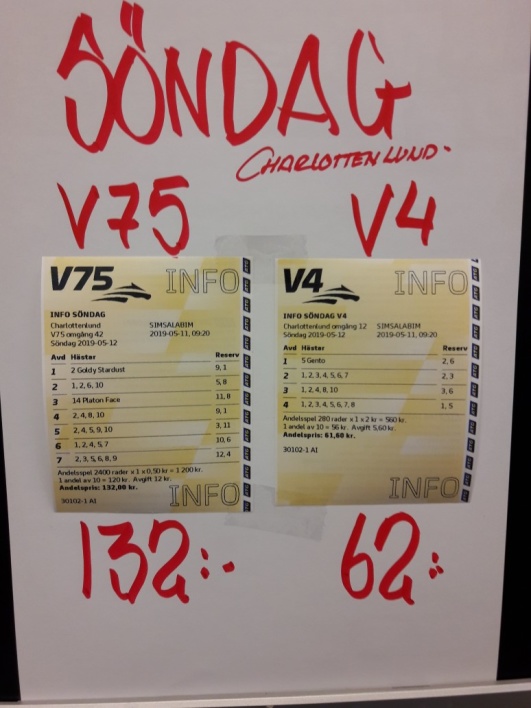 SÖNDAG
CHARLOTTENLUND
V75
V4
V75 INFO
INFO SÖNDAG
Charlottenlund SIMSALABIM
V75 omgång 42 2019-05-11, 09:20
Söndag 2019-05-12
Avd Hästar Reserv
1 2 Goldy Stardust 9, 1
2 1, 2, 6, 10 5, 8
3 14 Platon Face 11, 8
4 2, 4, 8, 10 9, 1
5 2, 4, 5, 9, 10 3, 11
6 1, 2, 4, 5, 7 10, 6
7 2, 3, 5, 6, 8, 9 12, 4
Andelsspel 2400 rader x 1 x 0,50 kr = 1 200 kr.
1 andel av 10 = 120 kr. Avgift 12 kr.
Andelspris: 132,00 kr.
30102-1 A1
INFO
V4 INFO
INFO SÖNDAG V4
Charlottenlund omgång 12 SIMSALABIM
Söndag 2019-05-12 2019-05-11, 09:20
Avd Hästar Reserv
1 5 Gento 2, 6
2 1, 2, 3, 4, 5, 6, 7 2, 3
3 1, 2, 4, 8, 10 3, 6
4 1, 2, 3, 4, 5, 6, 7, 8 1, 5
Andelsspel 280 rader x 1 x 2 kr = 560 kr.
1 andel av 10 = 56 kr. Avgift 5,60 kr.
Andelspris: 61,60 kr.
30102-1 A1
INFO
132:-
62:-